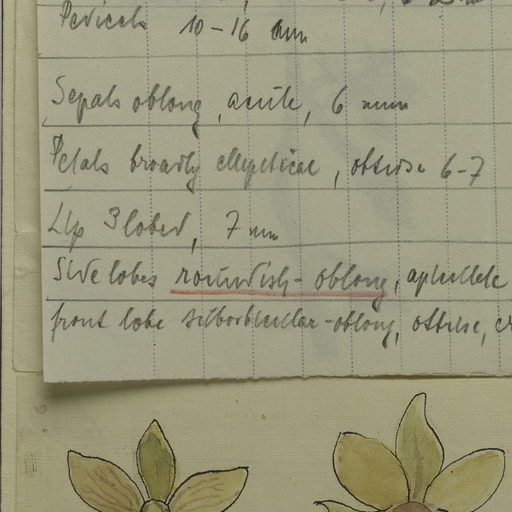 Pedicels 10-16 mm
Sepals oblong, acute, 6 mm
Petals broadly elliptical, obtuse 6-7
Lip 3 lobed, 7 mm
Side lobes roundish-oblong, apiculate
front lobe suborbicular-oblong, obtuse, cr